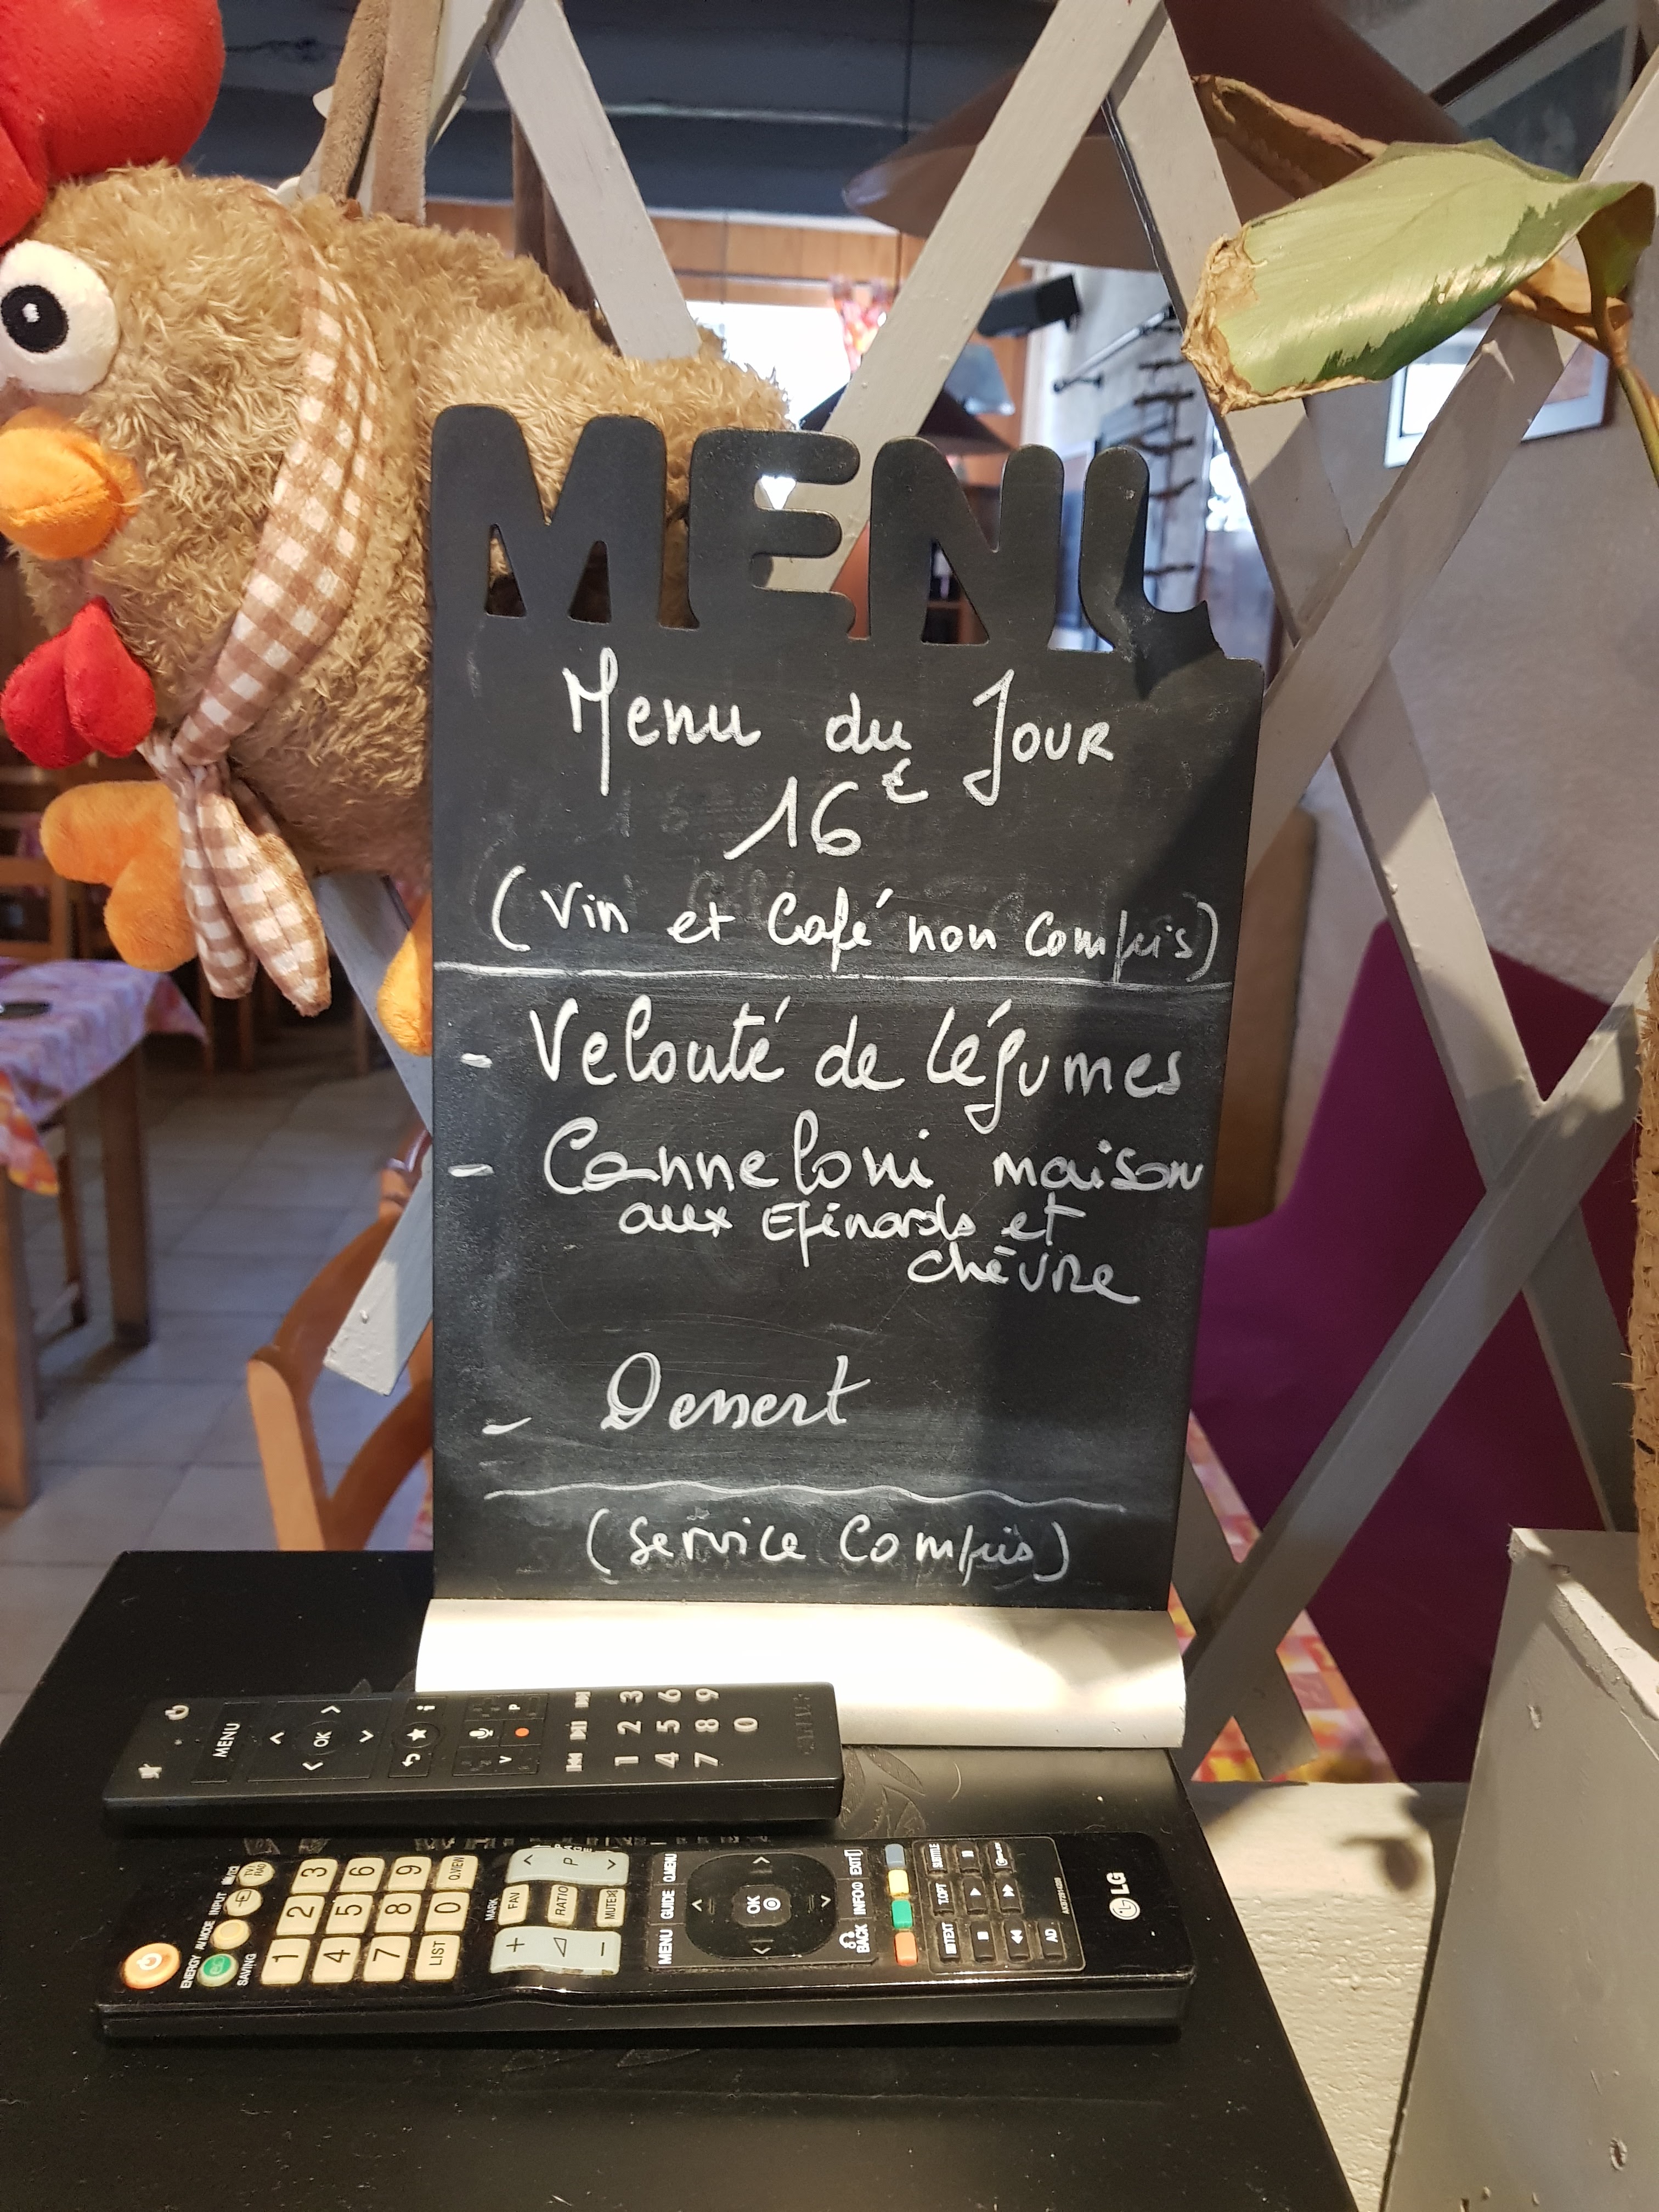 MENU
Menu du Jour
16€
(Vin et Café non Compris)
- Velouté de Légumes
- Canneloni maison
aux Epinards et
chèvre
- Dessert
(Service Compris)
MENU
OK
P
V
1 2 3
4 5 6
7 8 9
0
ENERGY
SAVING
AV MODE
INPUT
TV/
RAD
1 2 3
4 5 6
7 8 9
LIST 0 Q.VIEW
MARK
FAV
RATIO
MUTE
P
MENU GUIDE Q.MENU
OK
BACK INFO EXIT
TEXT T.OPT SUBTITLE
AD
LG